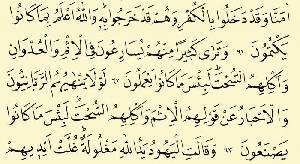 اٰمَنَّا وَقَدْ دَخَلُوا بِالْكُفْرِ وَهُمْ قَدْ خَرَجُوا بِهِ وَاللّٰهُ اَعْلَمُ بِمَا كَانُوا
يَكْتُمُونَ وَتَرٰى كَثِيرًا مِنْهُمْ يُسَارِعُونَ فِى الْاِثْمِ وَالْعُدْوَانِ
وَاَكْلِهِمُ السُّحْتَ لَبِئْسَ مَا كَانُوا يَعْمَلُونَ لَوْلَا يَنْهٰيهُمُ الرَّبَّانِيُّونَ
وَالْاَحْبَارُ عَنْ قَوْلِهِمُ الْاِثْمَ وَاَكْلِهِمُ السُّحْتَ لَبِئْسَ مَا كَانُوا
يَصْنَعُونَ وَقَالَتِ الْيَهُودُ يَدُ اللّٰهِ مَغْلُولَةٌ غُلَّتْ اَيْدِيهِمْ